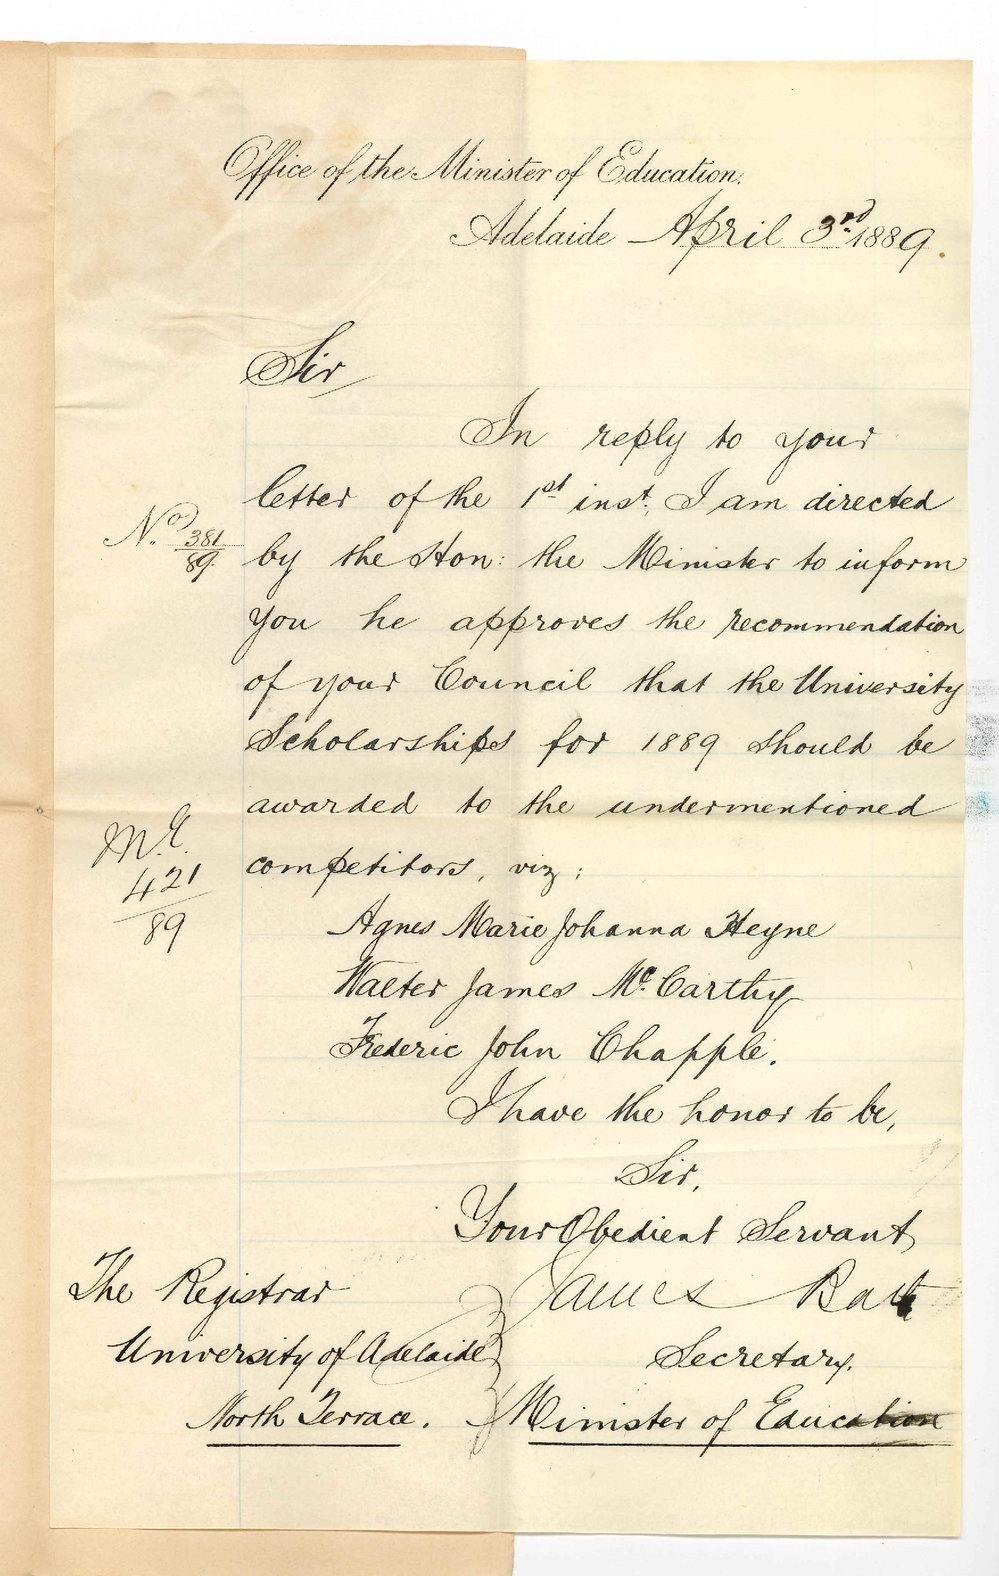 Office of the Minister of Education.
Adelaide April 3rd 1889.
Sir
In reply to your
letter of the 1st inst., I am directed
No 381/89
by the Hon: the Minister to inform
you he approves the recommendation
of your Council that the University
Scholarships for 1889 should be
awarded to the undermentioned
M.E.
421/89
competitors, viz;
Agnes Marie Johanna Heyne
Walter James McCarthy
Frederic John Chapple.
I have the honor to be,
Sir,
Your Obedient Servant
James Bath
Secretary.
Minister of Education
The Registrar
University of Adelaide
North Terrace.